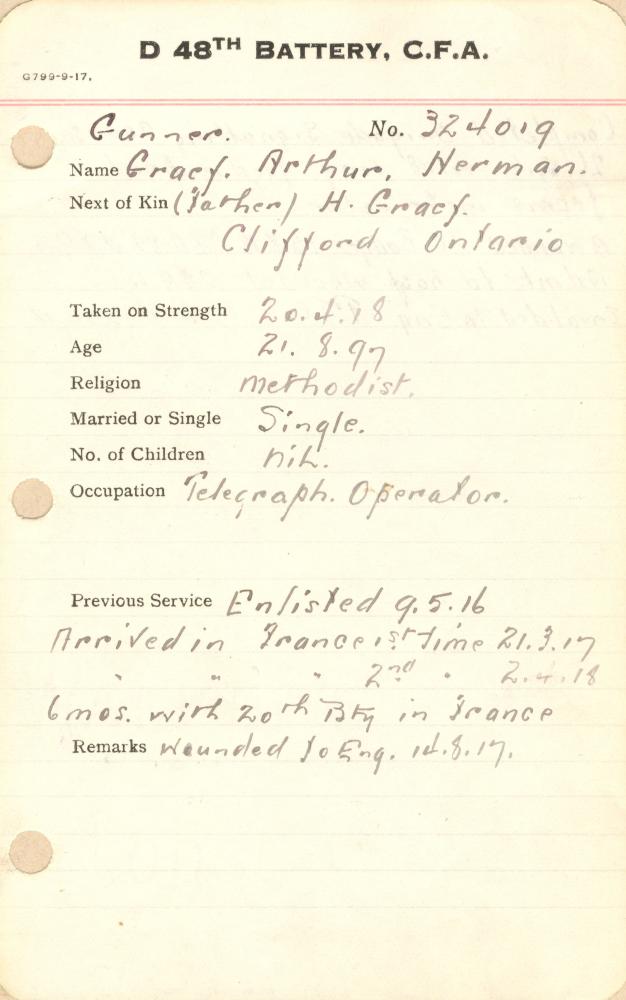 D 48TH BATTERY, C.F.A.
G799-9-17.
Gunner. No. 324019
Name Gracy. Arthur. Herman.
Next of Kin (Father) H. Gracy.
Clifford Ontario
Taken on Strength 20.4.18
Age 21. 8.97
Religion Methodist.
Married or Single Single.
No. of Children Nil.
Occupation Telegraph. Operator.
Previous Service Enlisted 9.5.16
Arrived in France 1st Time 21.3.17
" " " 2nd " 2.4.18
6 mos. with 20th Bty in France
Remarks Wounded To Eng. 14.8.17.